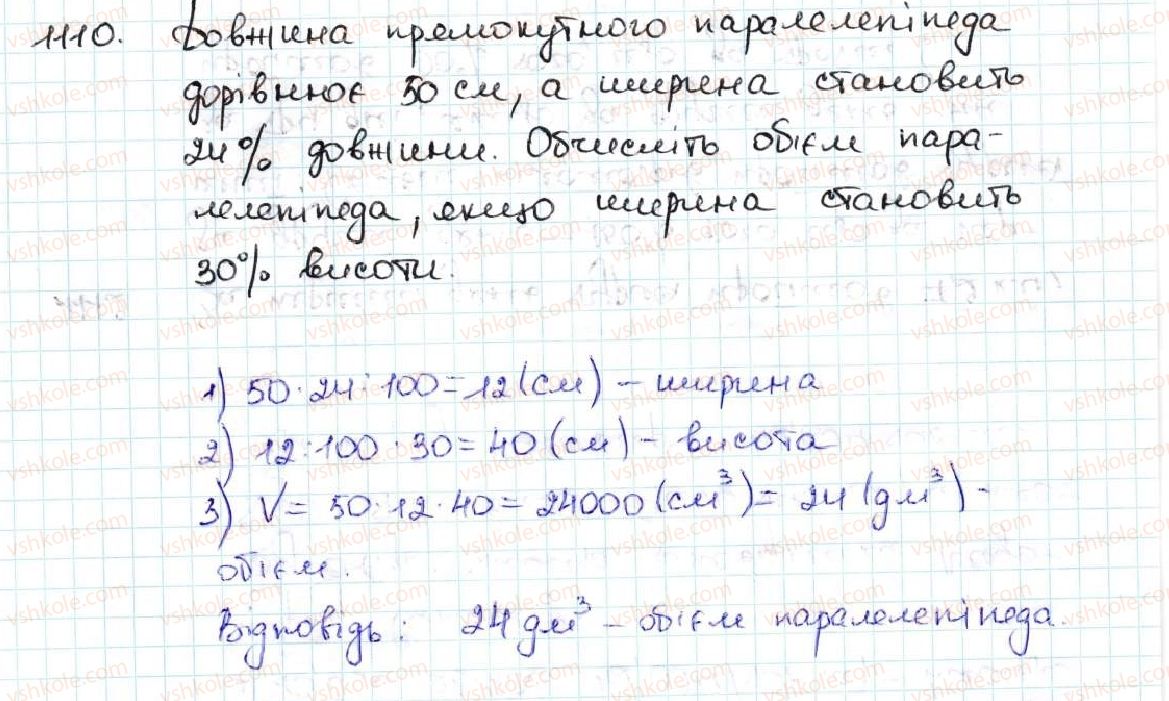 1110. Довжина прямокутного паралелепіпеда
дорівнює 50 см, а ширина становить
24% довжини. Обчисліть об'єм пара-
лелепіпеда, якщо ширина становить
30% висоти.
1) 50·24:100=12(см) – ширина
2) 12:100·30=40(см) – висота
3) V=50·12·40=24000(см³)=24(дм³) –
об'єм.
Відповідь: 24 дм³ – об'єм паралелепіпеда.